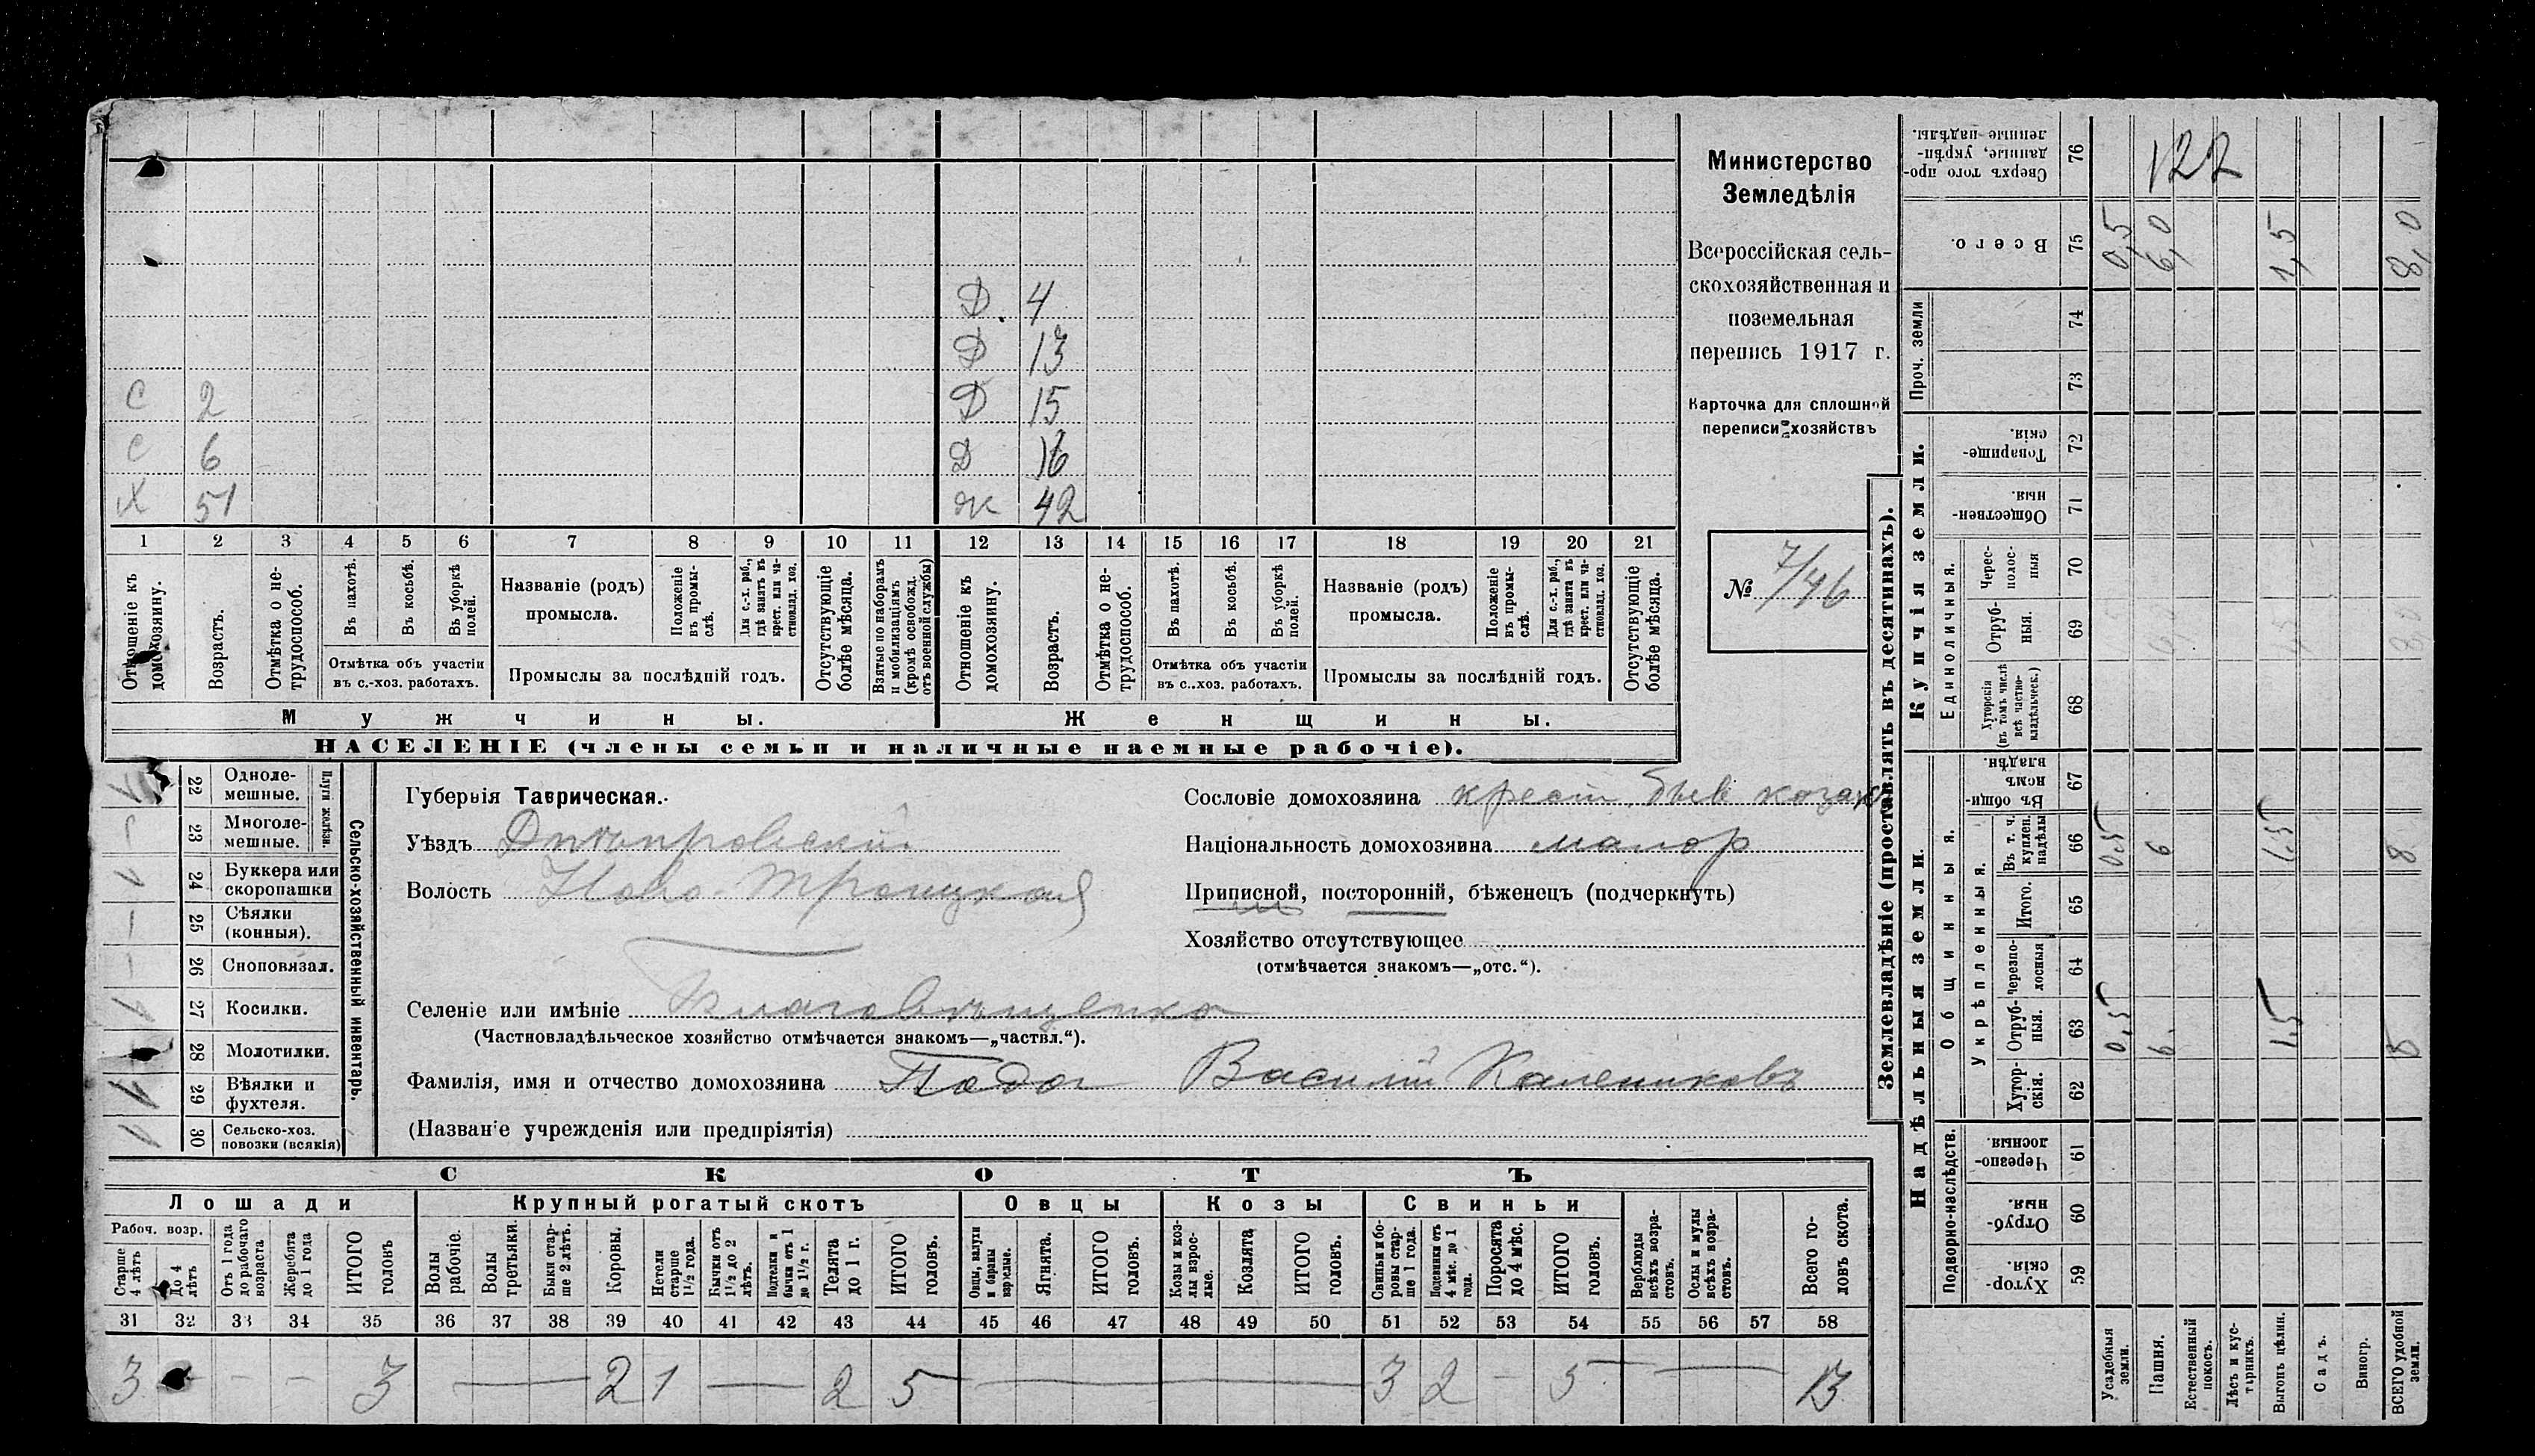 Министерство
Земледѣлія
Всероссійская сель-
скохозяйственная и
поземельная
перепись 1917 г.
Карточка для сплошной
переписи хозяйствъ
№ 7/46
Д 4
Д 13
С 2 Д 15
С 6 Д 16
Х 51 Ж 42
1 2 3 4 5 6 7 8 9 10 11 12 13 14 15 16 17 18 19 20 21
Отношеніе къ домохозяину.
Возрастъ.
Отмѣтка о не-трудоспособ.
Въ пахотѣ.
Въ косьбѣ.
Въ уборкѣ полей.
Отмѣтка объ участіи
въ с.-хоз. работахъ.
Названіе (родъ)
промысла.
Положеніе въ промы-слѣ.
Для с.-х. раб., гдѣ занятъ въ крест. или ча-стновлад. хоз.
Промыслы за послѣдній годъ.
Отсутствующіе болѣе мѣсяца.
Взятые по наборамъ и мобилизаціямъ (кромѣ освобожд. отъ военной службы)
Отношеніе къ домохозяину.
Возрастъ.
Отмѣтка о не-трудоспособ.
Въ пахотѣ.
Въ косьбѣ.
Въ уборкѣ полей.
Отмѣтка объ участіи
въ с.-хоз. работахъ.
Названіе (родъ)
промысла.
Положеніе въ промы-слѣ.
Для с.-х. раб., гдѣ занятъ въ крест. или ча-стновлад. хоз.
Промыслы за послѣдній годъ.
Отсутствующіе болѣе мѣсяца.
Мужчины. Женщины.
НАСЕЛЕНІЕ (члены семьи и наличные наемные рабочіе).
22 Одноле-мешные.
23 Многоле-мешные.
Плуги желѣзн.
24 Буккера или скоропашки
25 Сѣялки (конныя).
26 Сноповязал.
27 Косилки.
28 Молотилки.
29 Вѣялки и фухтеля.
30 Сельско-хоз. повозки (всякія)
Сельско-хозяйственный инвентарь.
Губернія Таврическая.
Уѣздъ Днѣпровский
Волость Ново-Троицкая
Селеніе или имѣніе Благовѣщенка
(Частновладѣльческое хозяйство отмѣчается знакомъ—„частвл.“).
Фамилія, имя и отчество домохозяина Василій Калениковъ
(Названіе учрежденія или предпріятія)
Сословіе домохозяина крест. бывв козакъ
Національность домохозяина малор
Приписной, посторонній, бѣженецъ (подчеркнуть)
Хозяйство отсутствующее
(отмѣчается знакомъ—„отс.“).
СКОТЪ
Лошади Крупный рогатый скотъ Овцы Козы Свиньи
Рабоч. возр.
Старше 4 лѣтъ
До 4 лѣтъ
Отъ 1 года до рабочаго возраста
Жеребята до 1 года
ИТОГО головъ
Волы рабочіе.
Волы третьяки.
Быки стар-ше 2 лѣтъ.
Коровы.
Нетели старше 1½ года.
Бычки отъ 1½ до 2 лѣтъ.
Подтелки и бычки отъ 1 до 1½ г.
Телята до 1 г.
ИТОГО головъ.
Овцы, валухи и бараны взрослые.
Ягнята.
ИТОГО головъ.
Козы и коз-лы взрос-лые.
Козлята.
ИТОГО головъ.
Свиньи и бо-ровы стар-ше 1 года.
Подсвинки отъ 4 мѣс. до 1 года.
Поросята до 4 мѣс.
ИТОГО головъ.
Верблюды всѣхъ возра-стовъ.
Ослы и мулы всѣхъ возра-стовъ.
Всего го-ловъ скота.
31 32 33 34 35 36 37 38 39 40 41 42 43 44 45 46 47 48 49 50 51 52 53 54 55 56 57 58
3 - - - 3 — 2 1 — 2 5 — 3 2 - 5 — 13
Землевладѣніе (проставлять въ десятинахъ).
Надѣльныя земли.
Купчія земли.
Проч. земли
Подворно-наслѣдств.
Общинныя.
Укрѣпленныя.
Единоличныя.
Хутор-скія. 59
Отруб-ныя. 60
Черезпо-лосныя. 61
Хутор-скія. 62
Отруб-ныя. 63
Черезпо-лосныя 64
Итого. 65
Въ т. ч. куплен. надѣлы 66
Въ общи-номъ владѣн. 67
Хуторскія (въ томъ числѣ всѣ частно-владѣльческ.) 68
Отруб-ныя 69
Черес-полос-ныя 70
Обществен-ныя 71
Товарище-скія. 72
73
74
Всего. 75
Сверхъ того про-данные, укрѣп-ленные надѣлы. 76
Усадебныя земли.
Пашня.
Естественный покосъ.
Лѣсъ и кус-тарникъ.
Выгонъ цѣлин.
Садъ.
Виногр.
ВСЕГО удобной земли.
0,5 6. 1,5
0,5 6 1,5 8
0,5 6,0 1,5 8,0
122